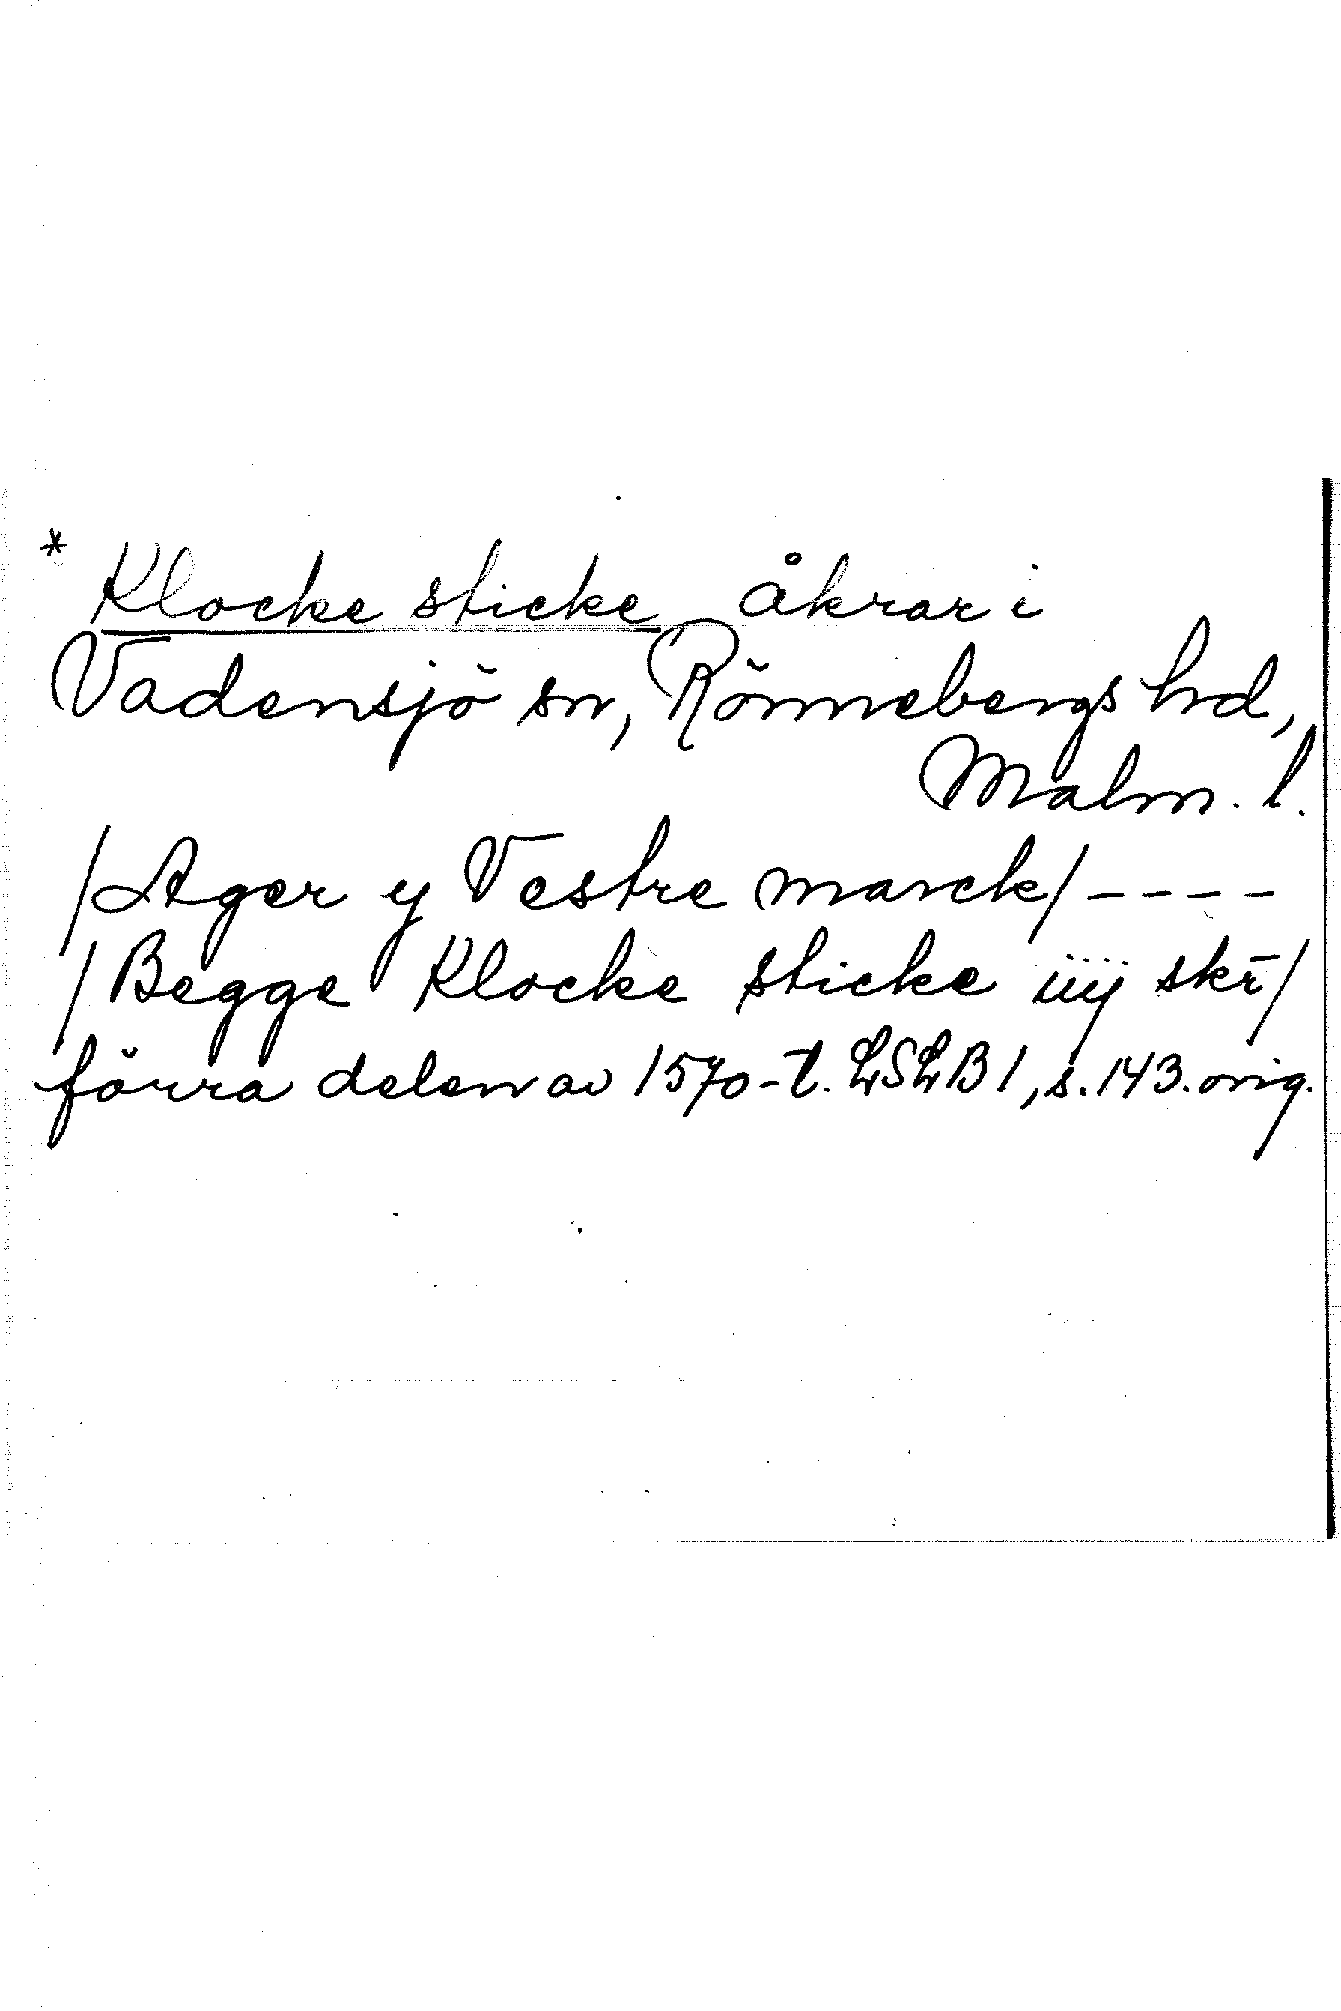 * Klocke sticke åkrar i
Vadensjö sn, Rönnebergs hrd,
Malm. l.
/Ager y Vestre marck/ - - - -
/Begge Klocke sticke iiij skr̄/
förra delen av 1570-t. LSLB 1, s. 143. orig.